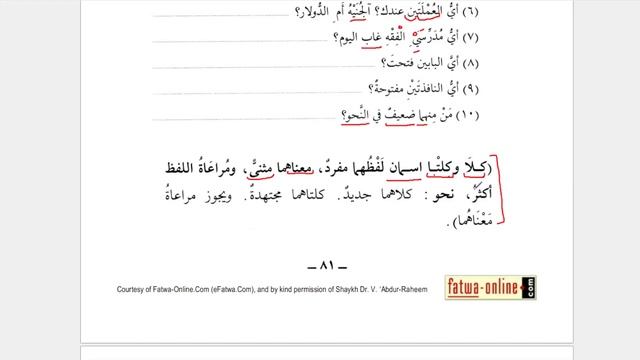 (٦) أيُّ العُمْلَتَينِ عندك؟ آلجُنَيْهُ أمِ الدُّولار؟
(٧) أيُّ مُدَرِّسَيِ الفِقْهِ غاب اليوم؟
(٨) أيَّ البابين فتحتَ؟
(٩) أيُّ النافِذتَيْنِ مفتوحةٌ؟
(١٠) مَنْ مِنهما ضعيفٌ في النَّحو؟
(كِلَا وكلتْـا اسمان لَفْظُهما مفردٌ، معناهما مثنىًّ، ومُراعَاةُ اللفظ
أكثرُ، نحو: كلاهما جديدٌ. كلتاهما مجتهدةٌ. ويجوز مراعاةُ
مَعْنَاهُما).
– ٨١ –
Courtesy of Fatwa-Online.Com (eFatwa.Com), and by kind permission of Shaykh Dr. V. 'Abdur-Raheem
fatwa-online.com